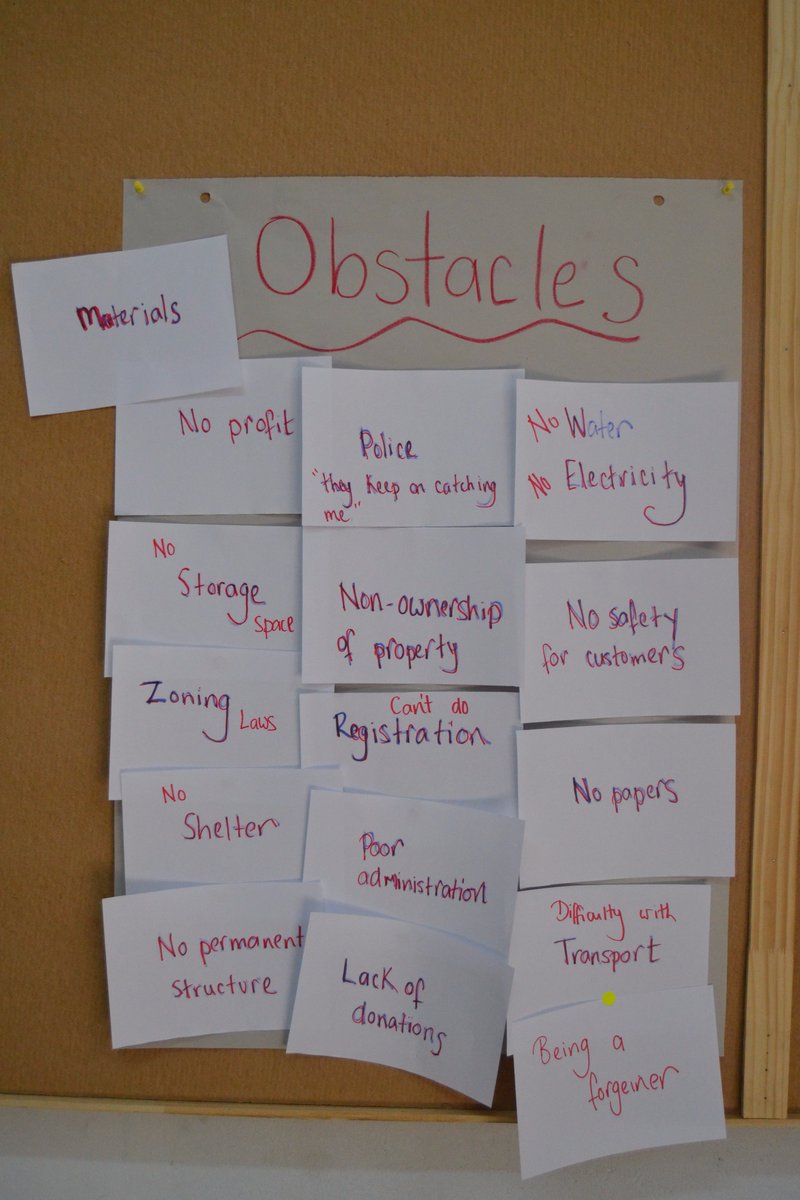 Obstacles
Materials
No profit
No
Storage
Space
Zoning
Laws
No
Shelter
No permanent
structure
Police
"they keep on catching
me"
Non-ownership
of property
Can't do
Registration
Poor
administration
Lack of
donations
No Water
No Electricity
No safety
for customers
No papers
Difficulty with
Transport
Being a
forgeiner